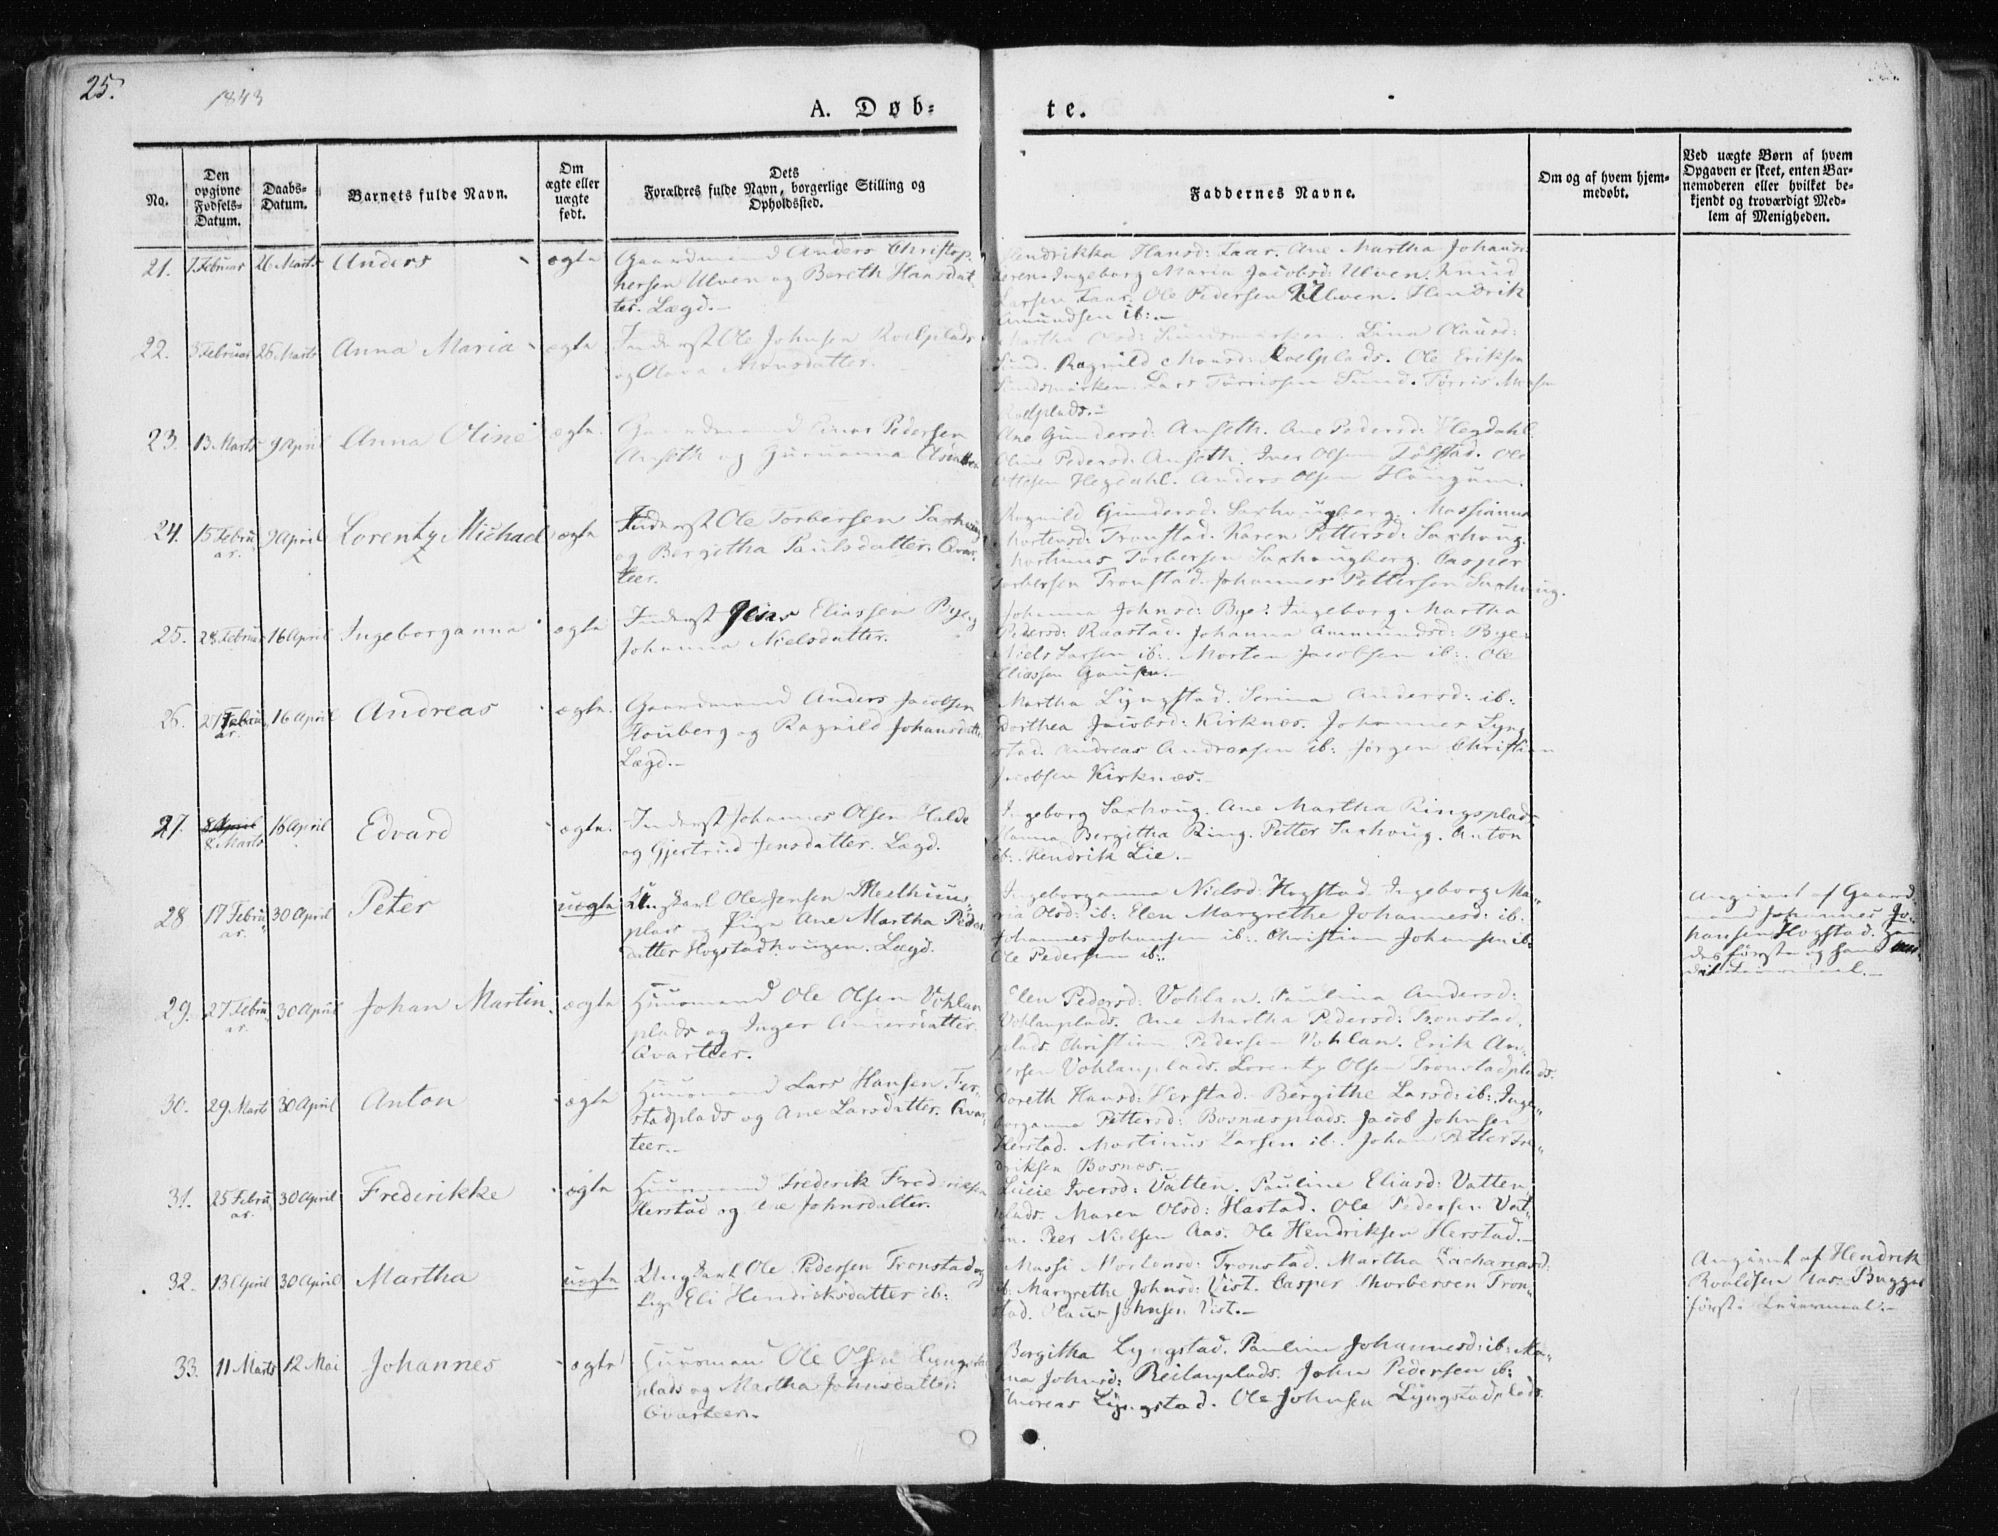 25.
1843
A. Døb-
te.
No.
Den opgivne Fødsels-Datum.
Daabs-Datum.
Barnets fulde Navn.
Om ægte eller uægte født.
Dets Forældres fulde Navn, borgerlige Stilling og Opholdssted.
Faddernes Navne.
Om og af hvem hjem-medøbt.
Ved uægte Børn af hvem Opgaven er skeet, enten Bar-nemoderen eller hvilket be-kjendt og troværdigt Med-lem af Menigheden.
21. Februar 26 Marts Anders ægte
Gaardmand Anders Christop-
hersen Ulven og Bereth Hansdat-
ter. Lægd.
Hendrikka Hansd: Faar. Ane Martha Johans
Ingeborg Maria Jacobsd: Ulven. Knud
Larsen Faar. Ole Pedersen Ulven. Hendrik
Amundsen ib:
22. Februar 26 Marts Anna Maria ægte
Inderst Ole Johnsen Roelplads
og Olava Monsdatter.
Martha Olsd: Lina Olausd:
Sund. Ragnild Monsd: Roelplads. Ole Eriksen
Lars Tørrissen Sund. Tørris
Roelplads.
23. 13 Marts 9 April Anna Oline ægte.
Gaardmand Pedersen
Anseth og Guruanna
Ane Gundersd: Anseth. Ane Pedersd: Hegdahl
Oline Pedersd: Anseth. Iver Olsen Ole
Ottesen Hegdahl. Anders Olsen Haugum.
24. 15 Febru 9 April Lorentz Michael ægte
ar.
Inderst Ole Torbersen Saxhaug
og Bergitha Paulsdatter. Qvar-
teer.
Ragnild Gundersd: Saxhougberg. Massianna
Mortensd: Tronstad. Karen Pettersd: Saxhoug.
Torbersen Saxhougberg. Casper
Torbersen Tronstad. Johannes Pettersen Saxhoug.
25. 28 Februar 16 April Ingeborganna ægte
Inderst Jens Eliassen Bye og
Johanna Nielsdatter.
Johanna Johnsd: Bye. Ingeborg Martha
Pedersd: Raastad. Johanna Ammundsd: Bye.
Niels Larsen ib:. Morten Jacobsen ib:. Ole
Eliassen
26. 27 Febru 16 April Andreas ægte.
ar.
Gaardmand Anders Jacobsen
og Ragnild Johansdatter
Lægd.
Martha Lyngstad. Serina Andersd: ib:
Dorthea Jacobsd: Kirknes. Johannes Lyng-
stad. Andreas Andersen ib: Jørgen Christian
Jacobsen Kirknæs.
27. 8 April 16 April Edvard ægte.
8 Marts
Inderst Johannes Olsen Halde
og Gjertrud Jensdatter. Lægd.
Ingeborg Saxhoug. Ane Martha Ringsplads.
Hanna Bergitha Ring. Petter Saxhoug. Anton
ib:. Hendrik Lie.
28 17 Febru 30 April Peter uægte
ar.
Ungkarl Ole Jensen Meelhuus-
plads og Pige Ane Martha Peders
datter Hogstadhougen. Lægd.
Ingeborganna Nielsd: Hogstad. Ingeborg Ma-
ria Olsd: ib: Elen Margrethe Johannesd: ib:
Johannes Johansen ib:. Christian Johansen ib:
Ole Pedersen ib:.
Angivet af Gaard
mand Johannes Jo-
hansen Hogstad.
des første og hans
29. 27 Febru 30 April Johan Martin. ægte
ar.
Huusmand Ole Olsen Vohlan
plads og Inger Andersdatter.
Qvarteer.
Elen Pedersd: Vohlan. Paulina Andersd:
Vohlanplads. Ane Martha Pedersd: Tronstad-
plads. Christian Pedersen Vohlan. Erik An-
dersen Vohlanplads. Lorentz Olsen Tronstadplads.
30. 29 Marts 30 April Anton ægte
Huusmand Lars Hansen Her-
stadplads og Ane Larsdatter. Qvar-
teer.
Doreth Hansd: Herstad. Bergithe Larsd: ib:. Inge-
borganna Pettersd: Bosnæsplads. Jacob Johnsen
Herstad. Martinus Larsen ib:. Johan Petter Fre-
driksen Bosnæs.
31. 25 Febru 30 April Frederikke ægte
ar.
Huusmand Frederik Fredriksen
Herstad og Johnsdatter.
Lucie Iversd: Vatten. Pauline Eliasd: Vatten
plads. Maren Olsd: Hastad. Ole Pedersen Vat-
ten. Peer Nielsen Aas. Ole Hendriksen Herstad.
32. 13 April 30 April Martha uægte
Ungkarl Ole Pedersen Tronstad og
Pige Eli Hendriksdatter ib:
Massi Mortensd: Tronstad. Martha Zachariasd:
ib: Margrethe Johnsd: Vist. Casper Thorbersen Tron-
stad. Olaus Johnsen Vist.
Angivet af Hendrik
Roaldsen Begges
første Leiermaal.
33. 11 Marts 12 Mai Johannes ægte
Huusmand Ole Olsen Lyngstad
plads og Martha Johnsdatter.
Qvarteer.
Bergitha Lyngstad. Pauline Johannesd: ib: Ma-
Johnsd: Reitanplads. John Pedersen ib:
Andreas Lyngstad. Ole Johnsen Lyngstadplads.